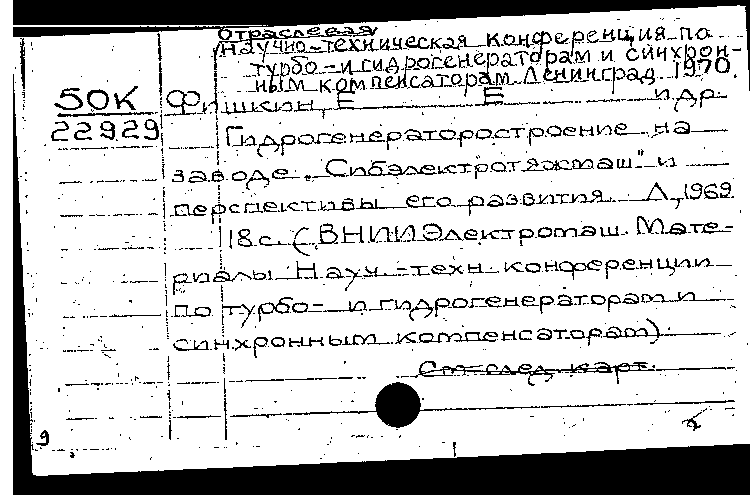 Отраслевая
научно-техническая конференция по
турбо- и гидрогенераторам и синхрон-
ным компенсаторам. Ленинград. 1970.
50К Фишкин, Е Е и др.
22929 Гидрогенераторостроение на
заводе „Сибэлектротяжмаш" и
перспективы его развития. Л., 1969
18 с. (ВНИИЭлектромаш. Мате-
риалы Науч.-техн. конференции
по турбо- и гидрогенераторам и
синхронным компенсаторам).
См. след. карт.
9